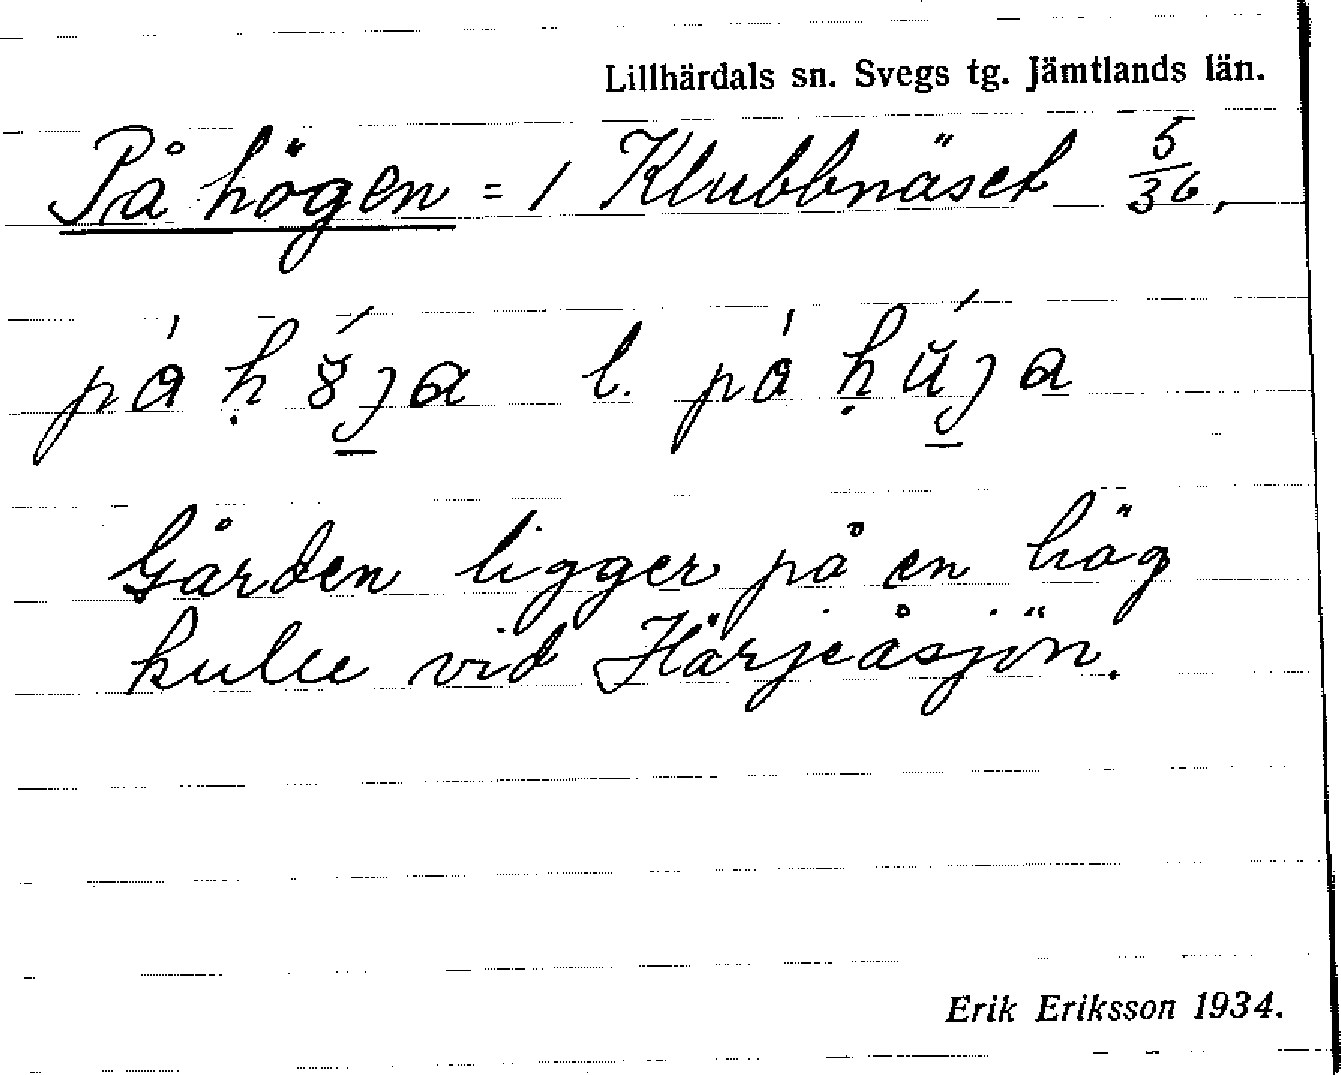 Lillhärdals sn. Svegs tg. Jämtlands län.
På högen = 1 Klubbnäset 5/36,
på l. på
Gården ligger på en hög
kulle vid Härjeåsjön.
Erik Eriksson 1934.